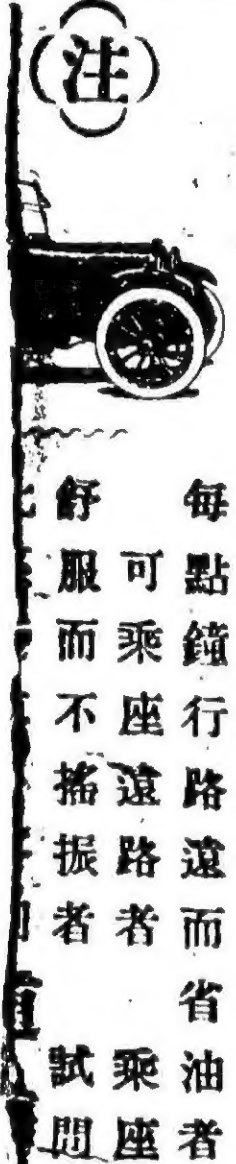 注
每點鐘行路遠而省油者
可乘座遠路者 乘座
舒服而不搖振者 試問